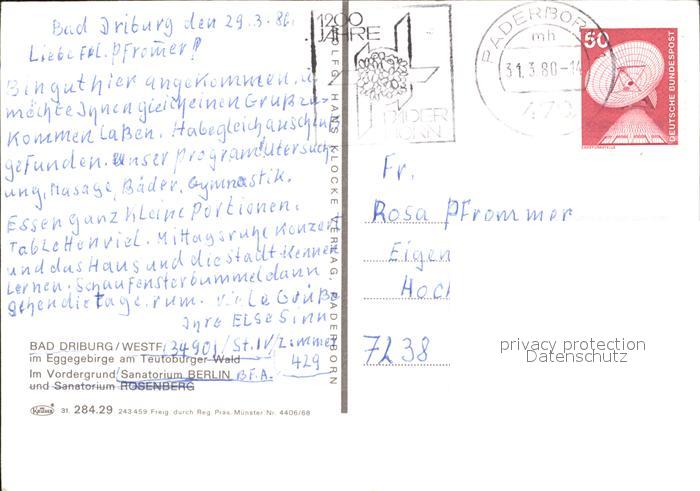 Bad Driburg den 29.3.80.
Liebe Frl. Pfromer!
Bin gut hier angekommen, u
möchte Ihnen gleich einen Gruß zu-
kommen laßen. Habe gleich anschluß
gefunden. Unser Program! Untersuch
ung, Masage, Bäder, Gymnastik.
Essen ganz kleine Portionen.
Tabletten viel. Mittagsruhe Konzert
und das Haus und die Stadt kennen
lernen. Schaufensterbummel dann
gehen die tage rum. viele Grüße
Ihre Else Sinn
34901/St.IV/Zimmer
429
BAD DRIBURG/WESTF.
im Eggegebirge am Teutoburger Wald
Im Vordergrund Sanatorium BERLIN BFA.
und Sanatorium ROSENBERG
31. 284.29 243459 Freig. durch Reg. Präs. Münster Nr. 4406/68
WOLFG. HANS KLOCKE VERLAG, PADERBORN
1200
JAHRE
PADER
BORN
PADERBORN
mh
31.3.80-14
479
50
DEUTSCHE BUNDESPOST
ERDEFUNKSTELLE
Fr.
Rosa Pfrommer
Eigen
Hoch
7238
privacy protection
Datenschutz